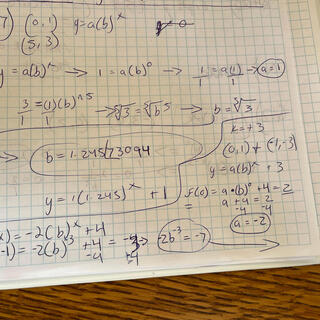 7) (0,1) y=a(b)^x
(5,3)
y = a(b)^x → 1 = a(b)^0 → 1/1 = a(1)/1 → a=1
3/1 = (1)(b)^5/1 → ⁵√3 = ⁵√b^5 → b = ⁵√3
b = 1.24573094
y = 1(1.245)^x + 1
k=+3
(0,1) + (-1,-3)
y = a(b)^x + 3
f(0) = a•(b)^0 + 4 = 2
a + 4 = 2
-4 -4
a = -2
x) = -2(b)^x + 4
-1) = -2(b)^-3 +4 = -3 → -2b^-3 = -7
-4 -4